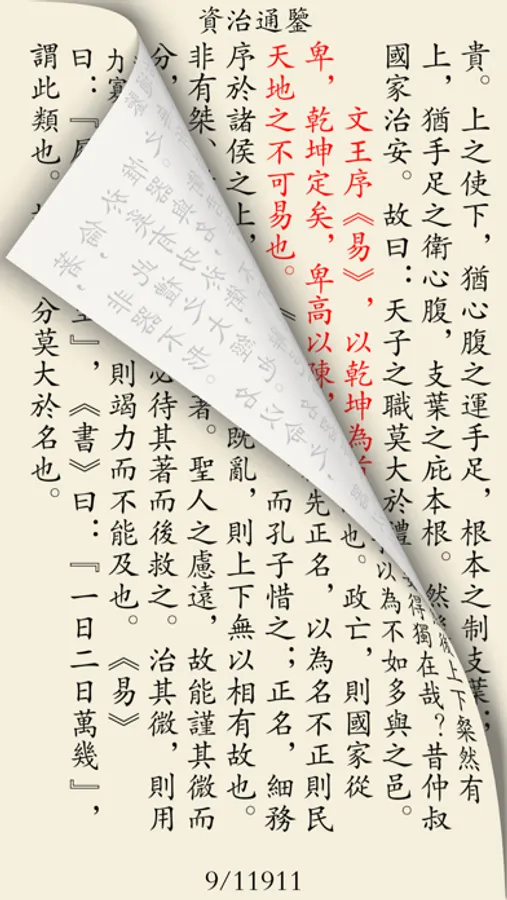 資治通鑒
貴。上之使下，猶心腹之運手足，根本之制支葉；
上下粲然有
上，猶手足之衛心腹，支葉之庇本根。然
得獨在哉？昔仲叔
國家治安。故曰：天子之職莫大於禮
以為不如多與之邑。
文王序《易》，以乾坤為
也。政亡，則國家從
卑，乾坤定矣，卑高以陳，
先正名，以為名不正則民
天地之不可易也。《
而孔子惜之；正名，細務
序於諸侯之上，
既亂，則上下無以相有故也。
非有桀、
著。聖人之慮遠，故能謹其微而
分，
必待其著而後救之。治其微，則用
力寡
則竭力而不能及也。《易》
曰：『
』，《書》曰：『一日二日萬幾』，
謂此類也。
分莫大於名也。
9/11911